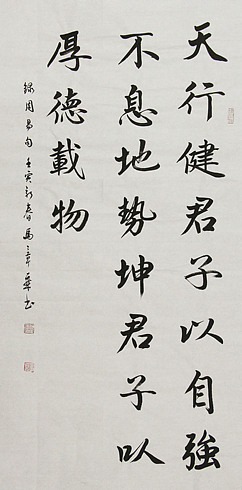 天行健君子以自強
不息地勢坤君子以
厚德載物
錄周易句壬寅新春馬章乘書